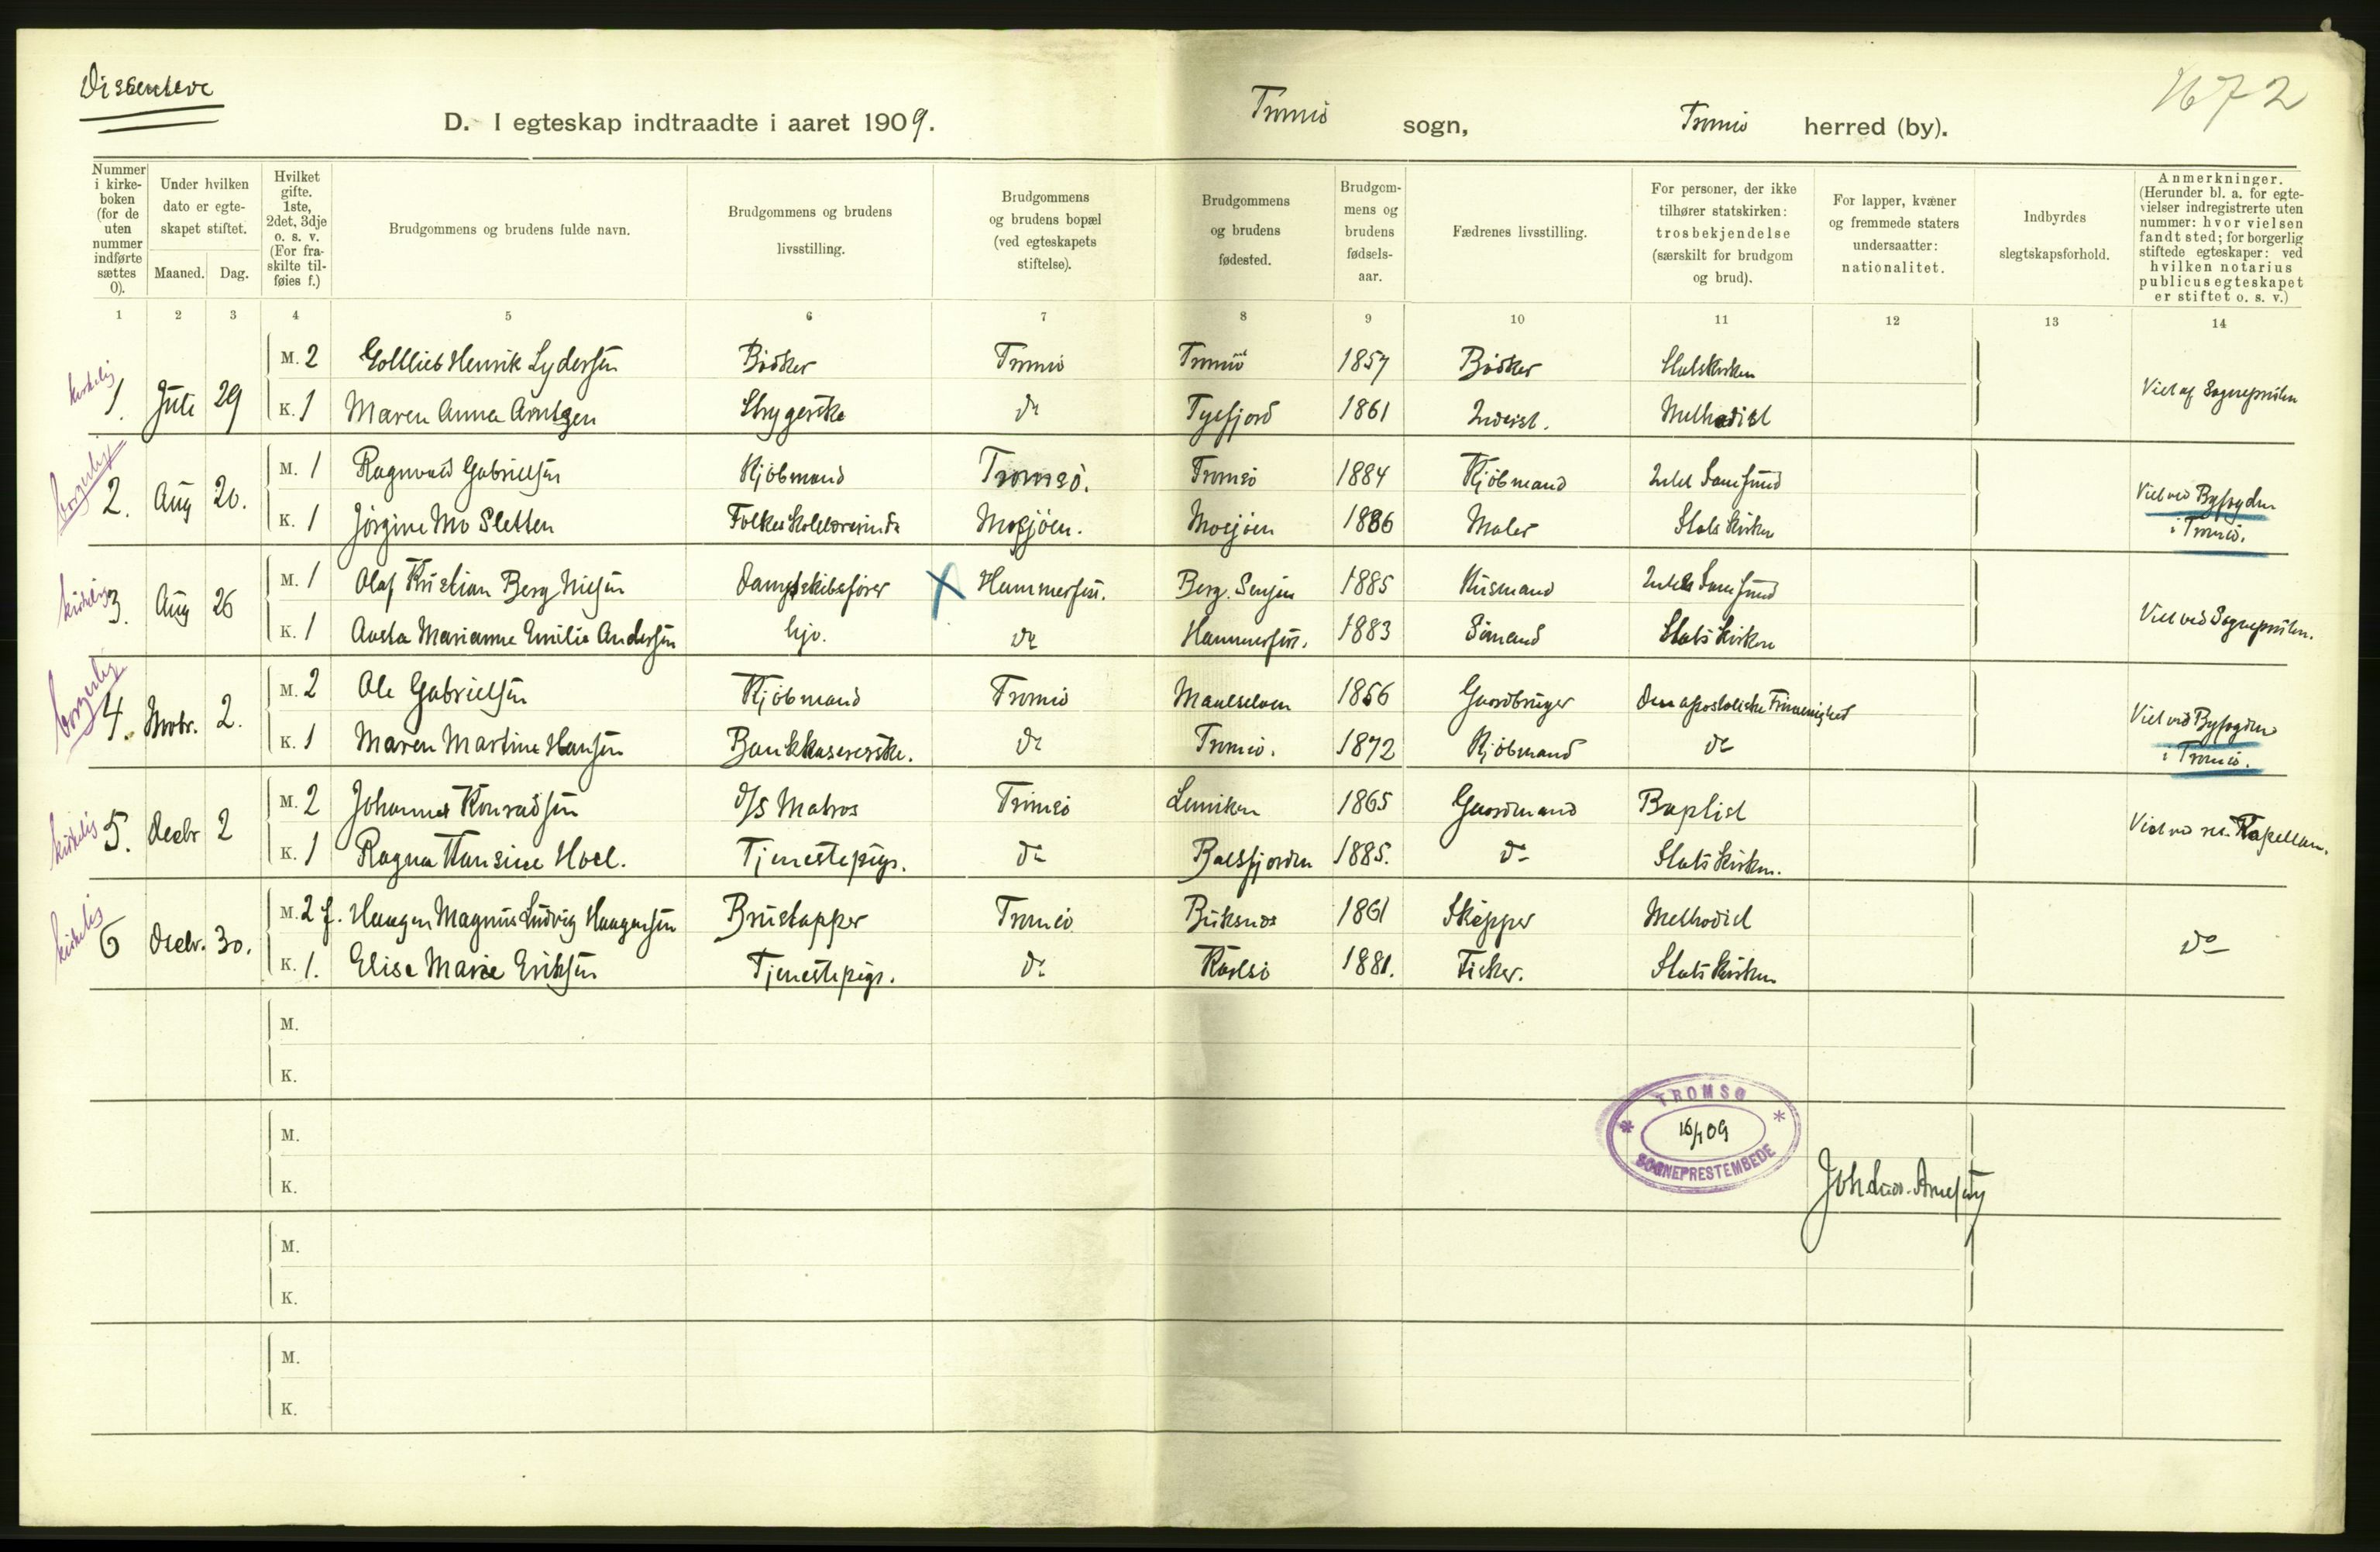 Dissentere
1672
D. I egteskap indtraadte i aaret 1909.
Tromsø sogn, Tromsø herred (by).
Nummer i kirke-boken (for de uten nummer indførte sættes 0).
Under hvilken dato er egte-skapet stiftet.
Maaned. Dag.
Hvilket gifte. 1ste, 2det, 3dje o. s. v. (For fra-skilte til-føies f.)
Brudgommens og brudens fulde navn.
Brudgommens og brudens livsstilling.
Brudgommens og brudens bopæl (ved egteskapets stiftelse).
Brudgommens og brudens fødested.
Brudgom-mens og brudens fødsels-aar.
Fædrenes livsstilling.
For personer, der ikke tilhører statskirken: trosbekjendelse (særskilt for brudgom og brud).
For lapper, kvæner og fremmede staters undersaatter: nationalitet.
Indbyrdes slegtskapsforhold.
Anmerkninger. (Herunder bl. a. for egte-vielser indregistrerte uten nummer: hvor vielsen fandt sted; for borgerlig stiftede egteskaper: ved hvilken notarius publicus egteskapet er stiftet o. s. v.)
1 2 3 4 5 6 7 8 9 10 11 12 13 14
kirkelig
M. 2 Gottlieb Henrik Lydersen Bödker Tromsö Tromsö 1857 Bödker Statskirken
1. Juli 29 K. 1 Maren Anna Arntzen Strygerske do Tysfjord 1861 Inderst. Methodist Viet af Sogneprästen
borgerlig
M. 1 Ragnvald Gabrielsen Kjöbmand Tromsö. Tromsö 1884 Kjöbmand Intet Samfund
2. Aug 20. K. 1 Jörgine Mo Sletten Folkeskolelærerinde Mosjöen. Mosjöen 1886 Maler Statskirken Viet ved Byfogden i Tromsö.
kirkelig
M. 1 Olaf Kristian Berg Nielsen Dampskibsförer X Hammerfest. Berg. Senjen 1885 Husmand Intet Samfund
3. Aug 26 K. 1 Aasta Marianne Emilie Andersen hjv. do Hammerfest. 1883 Sömand Statskirken Viet ved Sogneprästen.
borgerlig
M. 2 Ole Gabrielsen Kjöbmand Tromsö Maalselven 1856 Gaardbruger Den apostoliske Trosmenighed
4. Novbr. 2. K. 1 Maren Martine Hansen Bankkassererske. do Tromsö. 1872 Kjöbmand do Viet ved Byfogden i Tromsö.
kirkelig
M. 2 Johannes Konradsen D/S Matros Tromsö Lenviken 1865 Gaardmand Baptist
5. Decbr 2 K. 1 Ragna Hansine Hoel. Tjenestepige. do Balsfjorden 1885. do Statskirken. Viet ved res. Kapellan.
kirkelig
M. 2 f. Haagen Magnus Ludvig Haagensen Brustapper Tromsö Buksnæs 1861 Skipper Methodist
6 Decbr. 30. K. 1. Elise Marie Eriksen Tjenestepige. do Karlsö 1881. Fisker. Statskirken do
M.
K.
M.
K.
M.
K.
M.
K.
TROMSØ
SOGNEPRESTEMBEDE